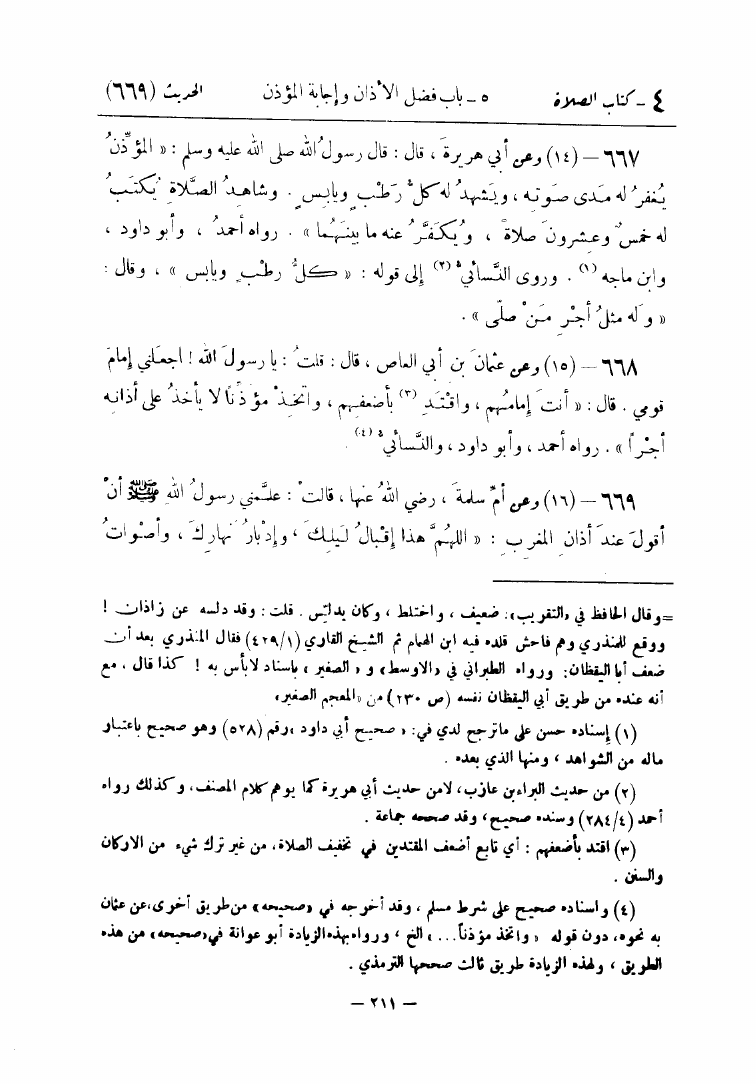 ٤ - كتاب الصلاة ٥ - باب فضل الأذان وإجابة المؤذن الحديث (٦٦٩)
٦٦٧ - (١٤) وعن أبي هريرةَ ، قال : قال رسولُ الله صلى الله عليه وسلم : « المؤذِّنُ
يُغفرُ له مَدى صَوتِه ، ويَشهدُ له كلُّ رَطْبٍ ويابسٍ . وشاهدُ الصَّلاةِ يُكتَبُ
له خمسٌ وعشرونَ صلاةً ، ويُكَفَّرُ عنه ما بينَهُما » . رواه أحمدُ ، وأبو داود ،
وابن ماجه (١) . وروى النَّسائيُّ (٢) إلى قوله : « كلُّ رطبٍ ويابس » ، وقال :
« وله مثلُ أجْرِ مَنْ صلّى » .
٦٦٨ - (١٥) وعن عثمانَ بن أبي العاص ، قال : قلتُ : يا رسولَ الله ! اجعلني إمامَ
قومي . قال : « أنتَ إمامُهم ، واقْتَدِ (٣) بأضعفِهم ، واتخِذْ مؤذِّنًا لا يأخذُ على أذانِه
أجْراً » . رواه أحمد ، وأبو داود ، والنَّسائيُّ (٤) .
٦٦٩ - (١٦) وعن أمِّ سلمةَ ، رضي اللهُ عنها ، قالتْ : علَّمني رسولُ اللهِ ﷺ أنْ
أقولَ عندَ أذانِ المغربِ : « اللهُمَّ هذا إقْبالُ لَيلِكَ ، وإدْبارُ نهارِكَ ، وأصْواتُ
= وقال الحافظ في «التقريب»: ضعيف ، واختلط ، وكان يدلس . قلت : وقد دلسه عن زاذان !
ووقع للمنذري وهم فاحش قلده فيه ابن الهمام ثم الشيخ القاري (٤٢٩/١) فقال المنذري بعد أن
ضعف أبا اليقظان: ورواه الطبراني في «الاوسط» و « الصغير » باسناد لابأس به ! كذا قال ، مع
أنه عنده من طريق أبي اليقظان نفسه (ص ٢٣٠) من «المعجم الصغير»
(١) إسناده حسن على ماترجح لدي في : « صحيح أبي داود »رقم (٥٢٨) وهو صحيح باعتبار
ماله من الشواهد ، ومنها الذي بعده .
(٢) من حديث البراء بن عازب، لامن حديث أبي هريرة كما يوهم كلام المصنف، وكذلك رواه
أحمد (٢٨٤/٤) وسنده صحيح، وقد صححه جماعة .
(٣) اقتد بأضعفهم : أي تابع أضعف المقتدين في تخفيف الصلاة، من غير ترك شيء من الاركان
والسنن .
(٤) واسناده صحيح على شرط مسلم ، وقد أخرجه في «صحيحه» من طريق أخرى، عن عثمان
به نحوه، دون قوله « واتخذ مؤذناً...» الخ ، ورواه بهذه الزيادة أبو عوانة في «صحيحه» من هذه
الطريق ، ولهذه الزيادة طريق ثالث صححها الترمذي .
- ٢١١ -